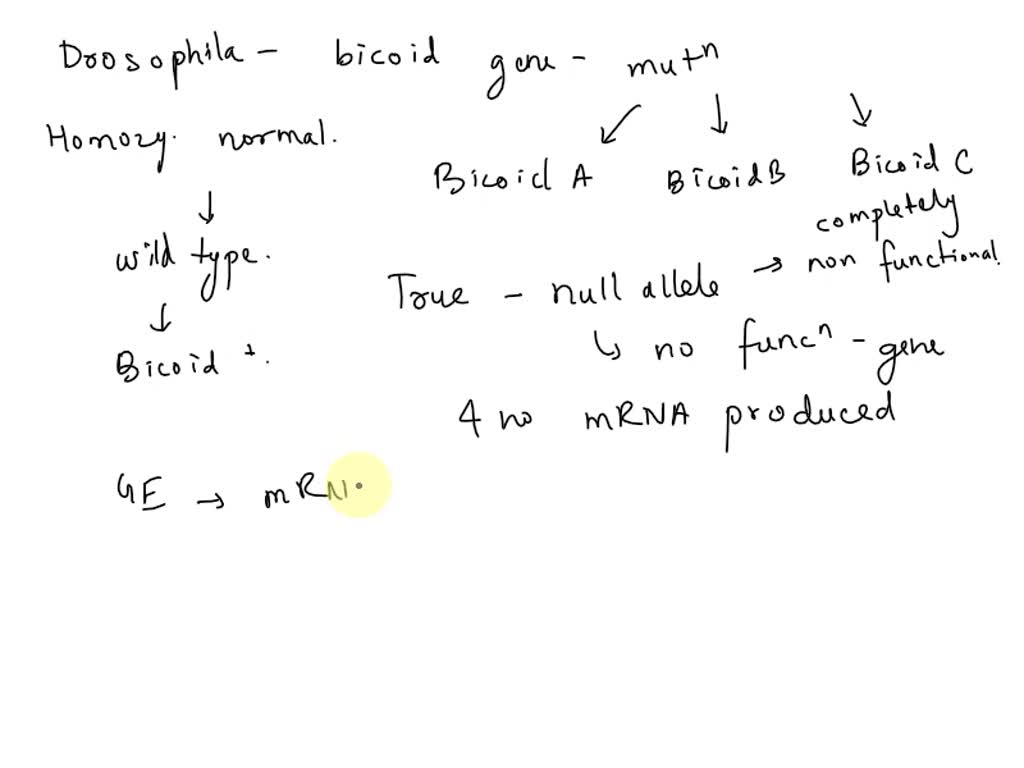 Drosophila - bicoid gene - mutⁿ
Homozy. normal.
Bicoid A Bicoid B Bicoid C
wild type.
completely
True - null allele → non functional.
Bicoid +.
↳ no funcⁿ - gene
4 no mRNA produced
GE → mRN